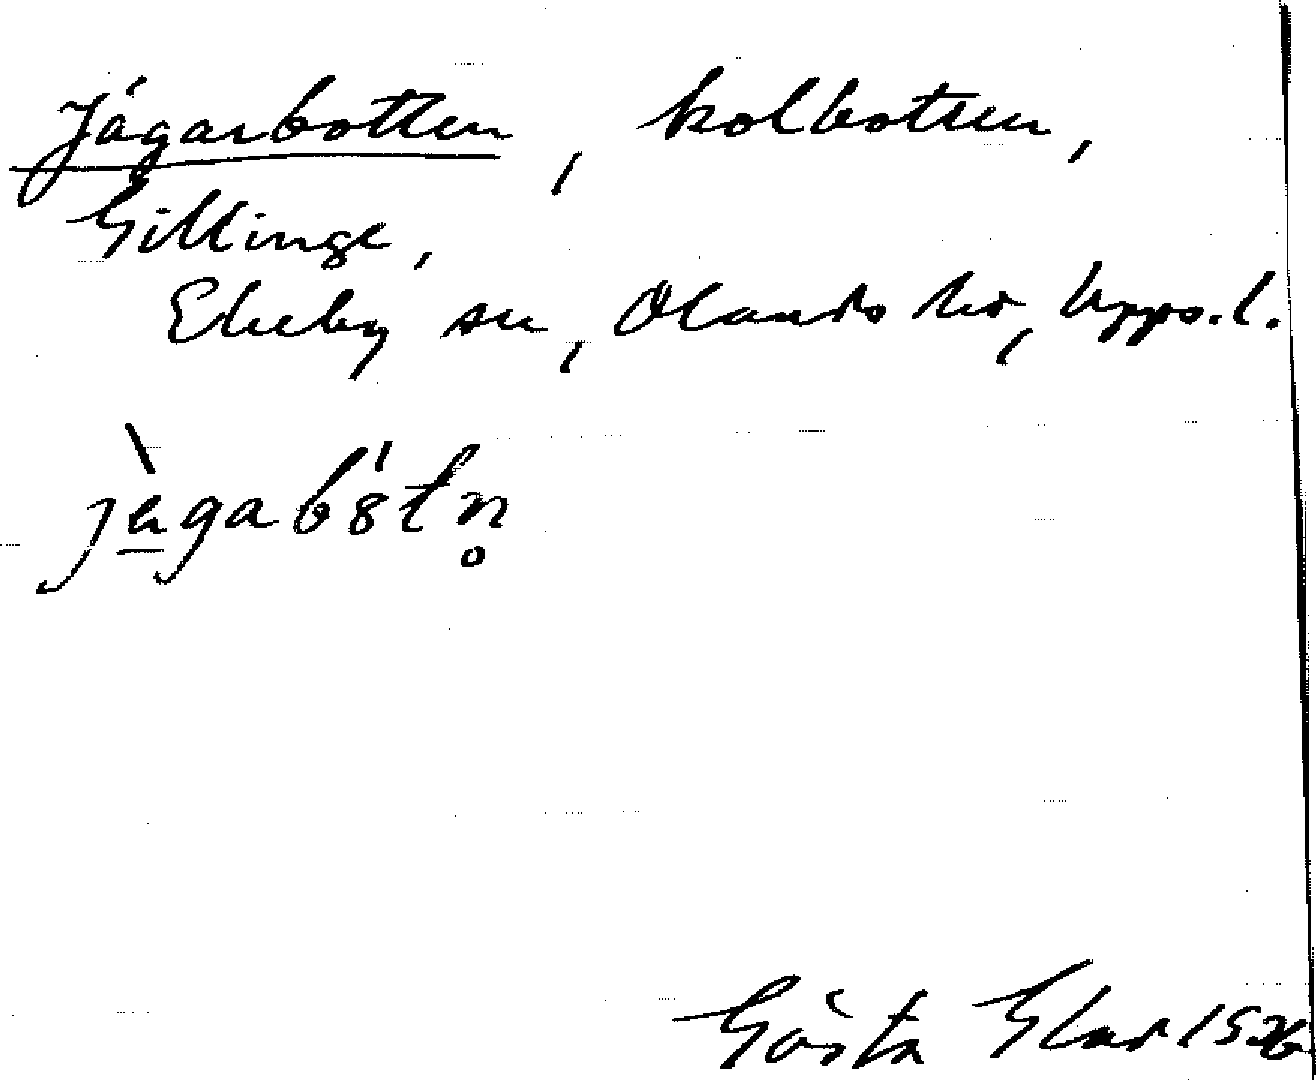 Jägarbotten, kolbotten,
Gillinge,
Ekeby sn, Olands hd, Upps. l.
jägabòtn̥
Gösta